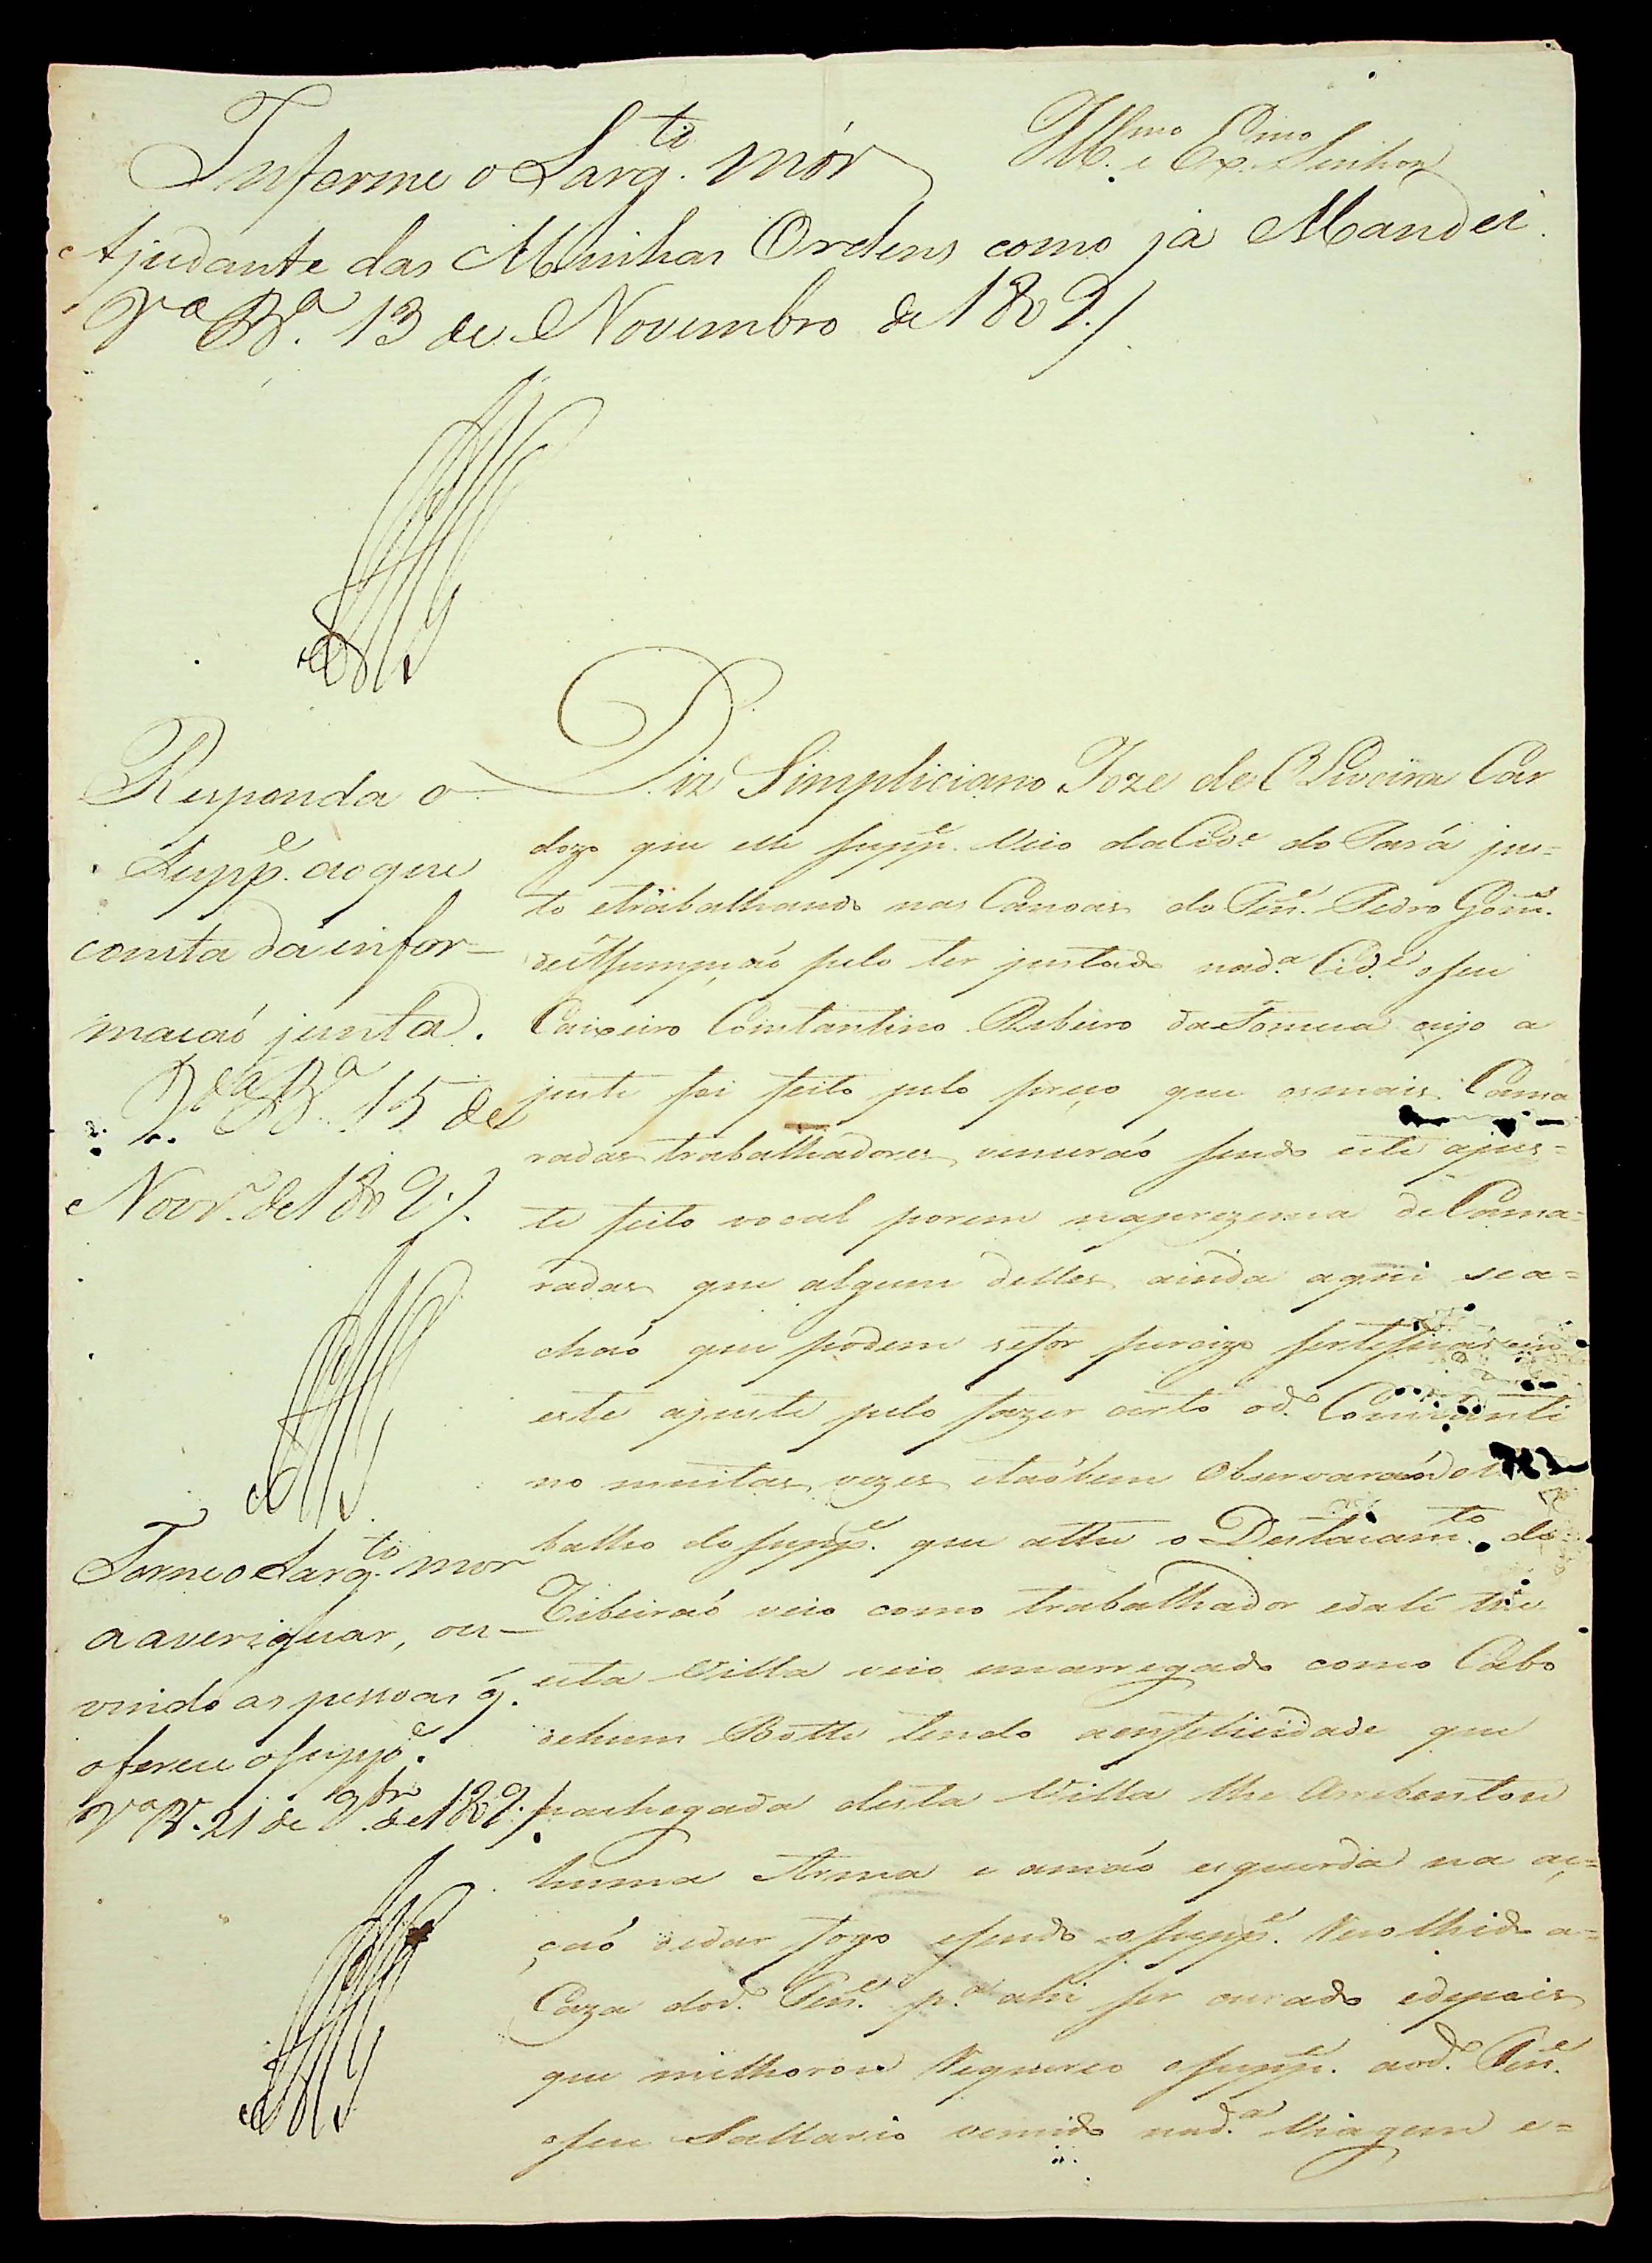 Informe o Sarg.to mór
Ajudante das Minhas Ordens como já Mandei.
V.a B.a 13 de Novembro de 1809./
Ill.mo e Ex.mo Senhor
Responda o
Supp.e ao que
consta da infor-
mação junta.
V.a B.a 15 de
Novr.o de 1809./
Torne o Sarg.to mor
a averiguar, ou-
vindo as pessoas q.
oferece o supp.e
V.a B.a 21 de 9br.o de 1809./
Diz Simpliciano Joze de Oliveira Car
dozo que elle supp.e veio da Cid.e do Pará jus-
to etrabalhando nas Canoas do Ten.e Pedro Gom.s
de Assumpção pelo ter justado nad.a Cid.e o seu
Caixeiro Constantino Ribeiro da Fonseca cujo a
juste foi feito pelo preço que os mais Cama
radas trabalhadores vencerão sendo este ajus-
te feito vocal porem naprezença de Cama-
radas que algum delles ainda aqui sea-
chão que pódem sefor percizo sertificarem
este ajuste pelo fazer certo od.o Constanti
no muitas vezes etaobem Observarão o
balho do supp.e que athe o Destacam.to do
Ribeirão veio como trabalhador edali the
esta Villa veio encarregado como Cabo
dehum Botte tendo aenfelicidade que
nachegada desta Villa lhe Arrebentou
huma Arma e amão esquerda na ac-
ção dedar fogo esendo osupp.e Recolhido a
Caza dod.o Ten.e p.a ahi ser curado edepois
que milhorou Requereo osupp.e aod.o Ten.e
oseu Sallario vencido nad.a Viagem e-